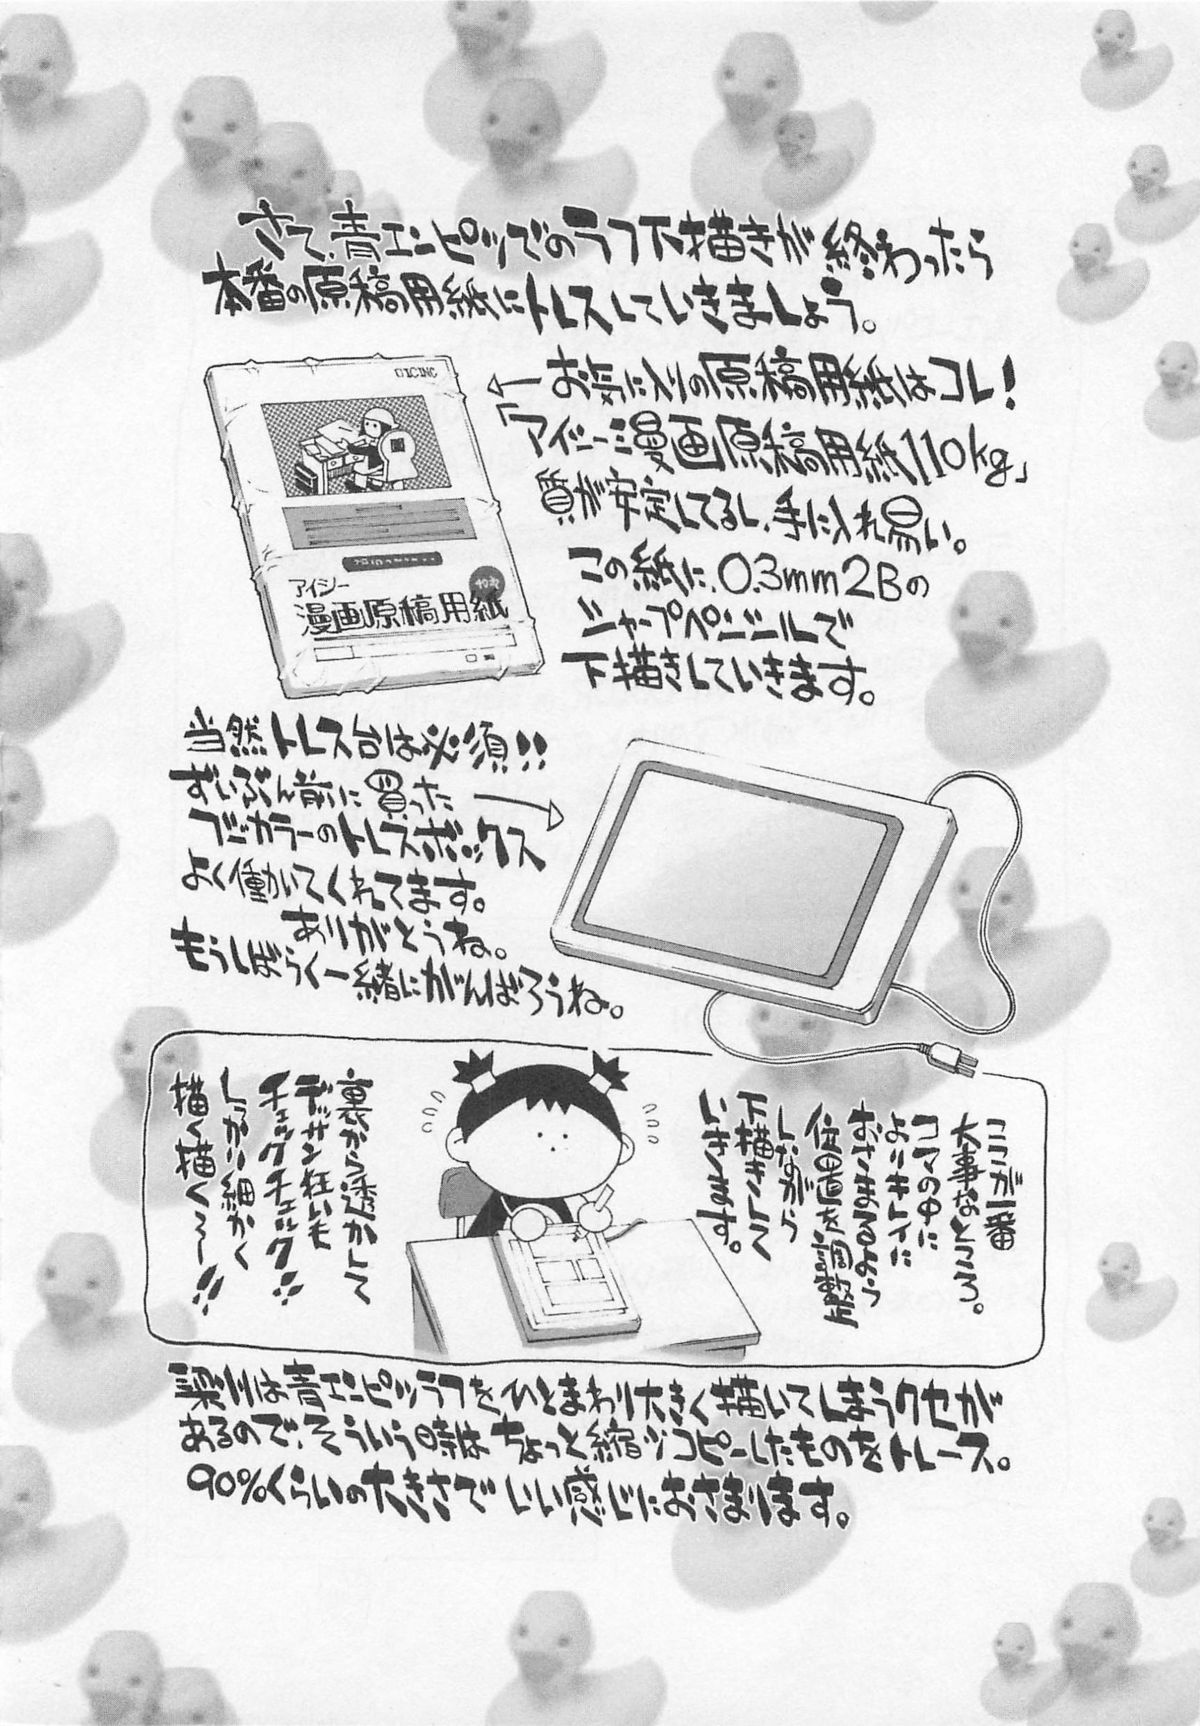 さて、青エンピツでのラフ下描きが終わったら
本番の原稿用紙にトレスしていきましょう。
お気に入りの原稿用紙はコレ!
「アイシー漫画原稿用紙110kg」
質が安定してるし、手に入れ易い。
この紙に、0.3mm2Bの
シャープペンシルで
下描きしていきます。
アイシー
漫画原稿用紙
当然トレス台は必須!!
ずいぶん前に買った
フジカラーのトレスボックス
よく働いてくれてます。
ありがとうね。
もうしばらく一緒にがんばろうね。
ここが一番
大事なところ。
コマの中に
よりキレイに
おさまるよう
位置を微調整
しながら
下描きして
いきます。
裏から透かして
デッサン狂いも
チェックチェック!!
しっかり細かく
描く描く〜〜!!
は青エンピツラフをひとまわり大きく描いてしまうクセが
あるので、そういう時はちょっと縮小コピーしたものをトレース。
90%くらいの大きさでいい感じにおさまります。